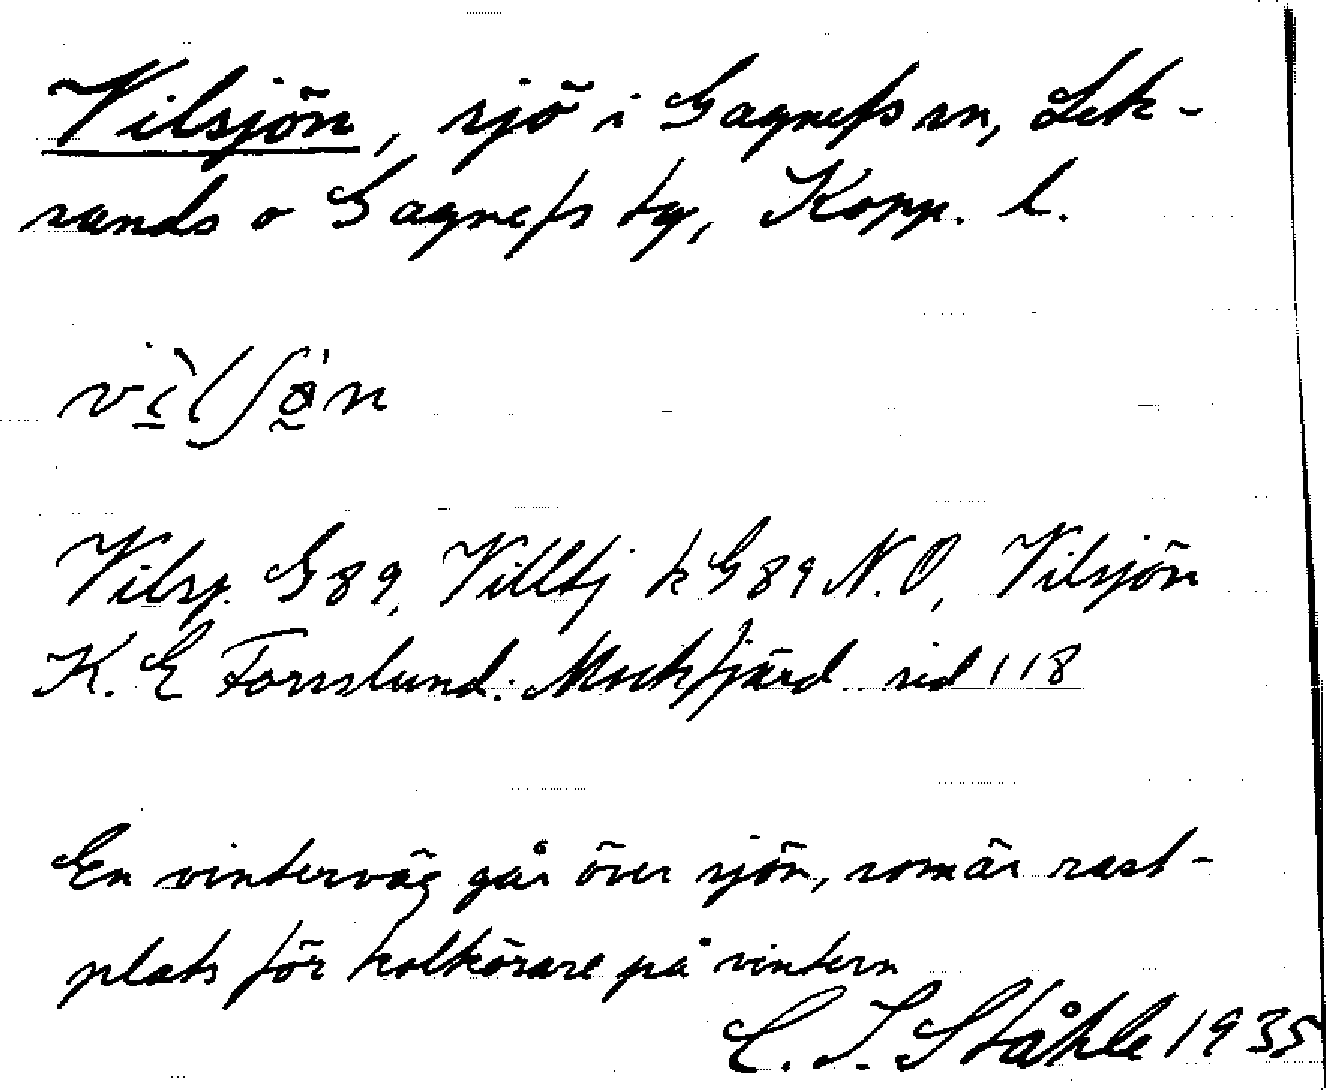 Vilsjön, sjö i Gagnefs sn, Lek-
sands o Gagnefs tg, Kopp. l.
Vilsj. G89, Villtj k G89 N.O, Vilsjön
K. E Forsslund: Mockfjärd sid 118
En vinterväg går över sjön, som är rast-
plats för kolkörare på vintern
C. I. Ståhle 1935